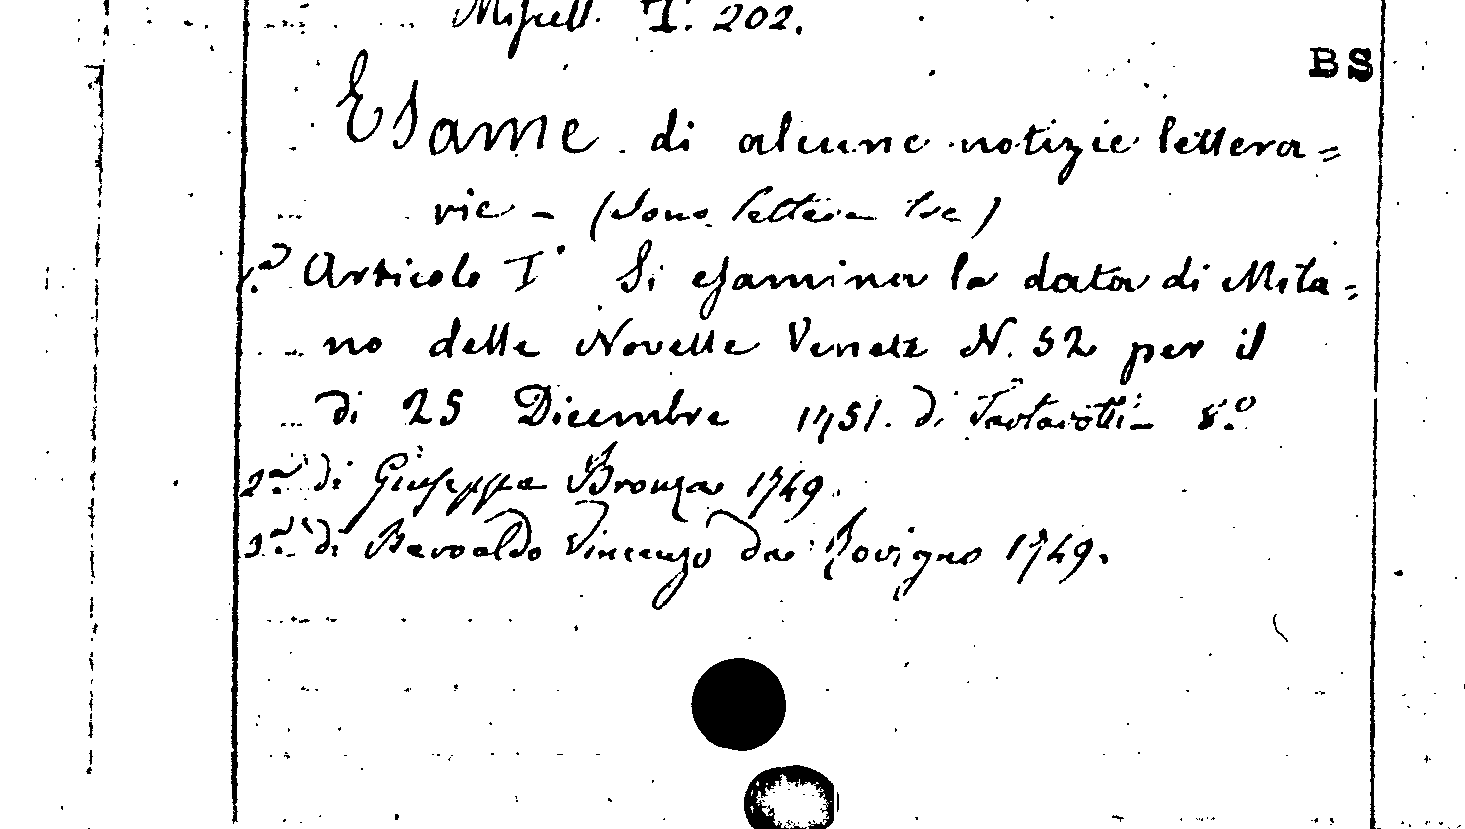 Miscell. T. 202.
BS
Esame di alcune notizie lettera=
rie - (sono lettere tre)
1.a Articolo I° Si esamina la data di Mila=
no delle Novelle Venete N. 52 per il
di 25 Dicembre 1751. di Tartarotti - 8.o
2.a di Giuseppe Bronza 1749.
3.a di Beroaldo Vincenzo da Rovigno 1749.